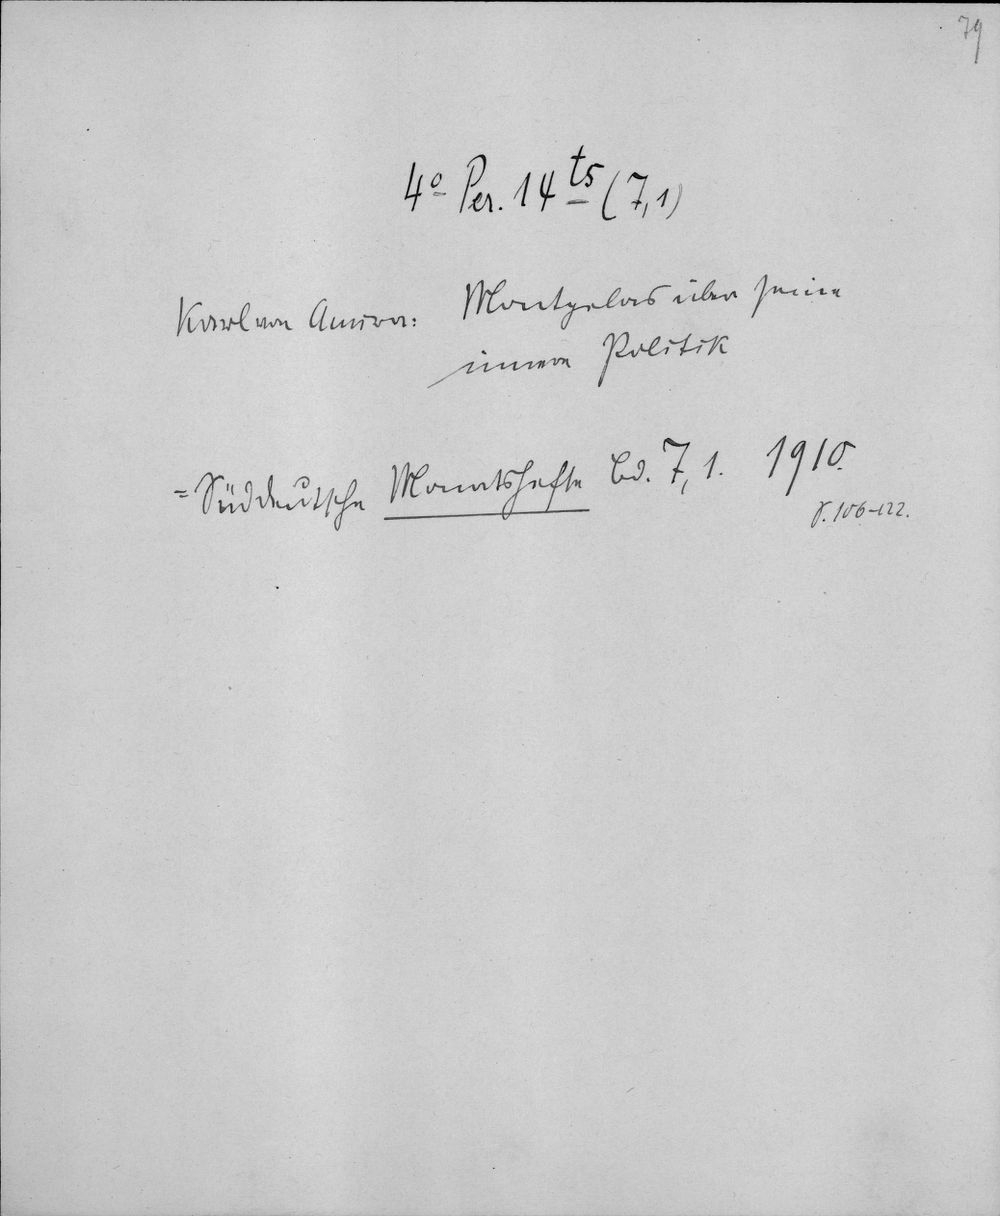 79
4° Per. 14 ts (7,1)
Karl von Amira: Montgelas über seine
innere Politik
= Süddeutsche Monatshefte Bd. 7,1. 1910.
S. 106-122.